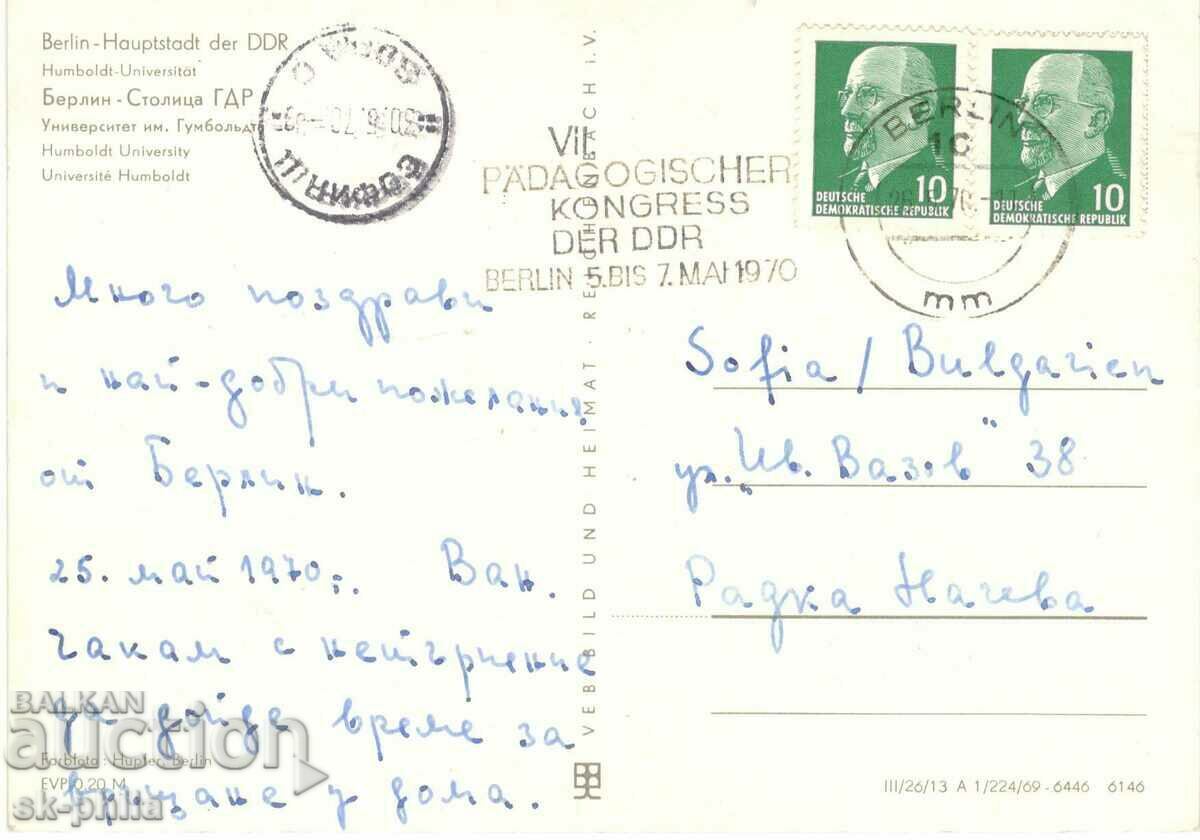 Berlin - Hauptstadt der DDR
Humboldt-Universität
Берлин - Столица ГДР
Университет им. Гумбольдта
Humboldt University
Université Humboldt
СОФИЯ
VII.
PÄDAGOGISCHER
KONGRESS
DER DDR
BERLIN 5. BIS 7. MAI 1970
BERLIN
mm
10
DEUTSCHE
DEMOKRATISCHE REPUBLIK
10
DEUTSCHE
DEMOKRATISCHE REPUBLIK
Много поздрави
и най-добри пожелания
от Берлин.
25. май 1970 г. Ван.
Чакам с нетърпение
да дойде време за
връщане у дома.
VEB BILD UND HEIMAT · REICHENBACH i.V.
Sofia / Bulgarien
ул. „Ив. Вазов" 38
Радка Начева
Farbfoto: Hupfer, Berlin
EVP 0,20 M
III/26/13 A 1/224/69 - 6446 6146
BALKAN
auction
sk-phila